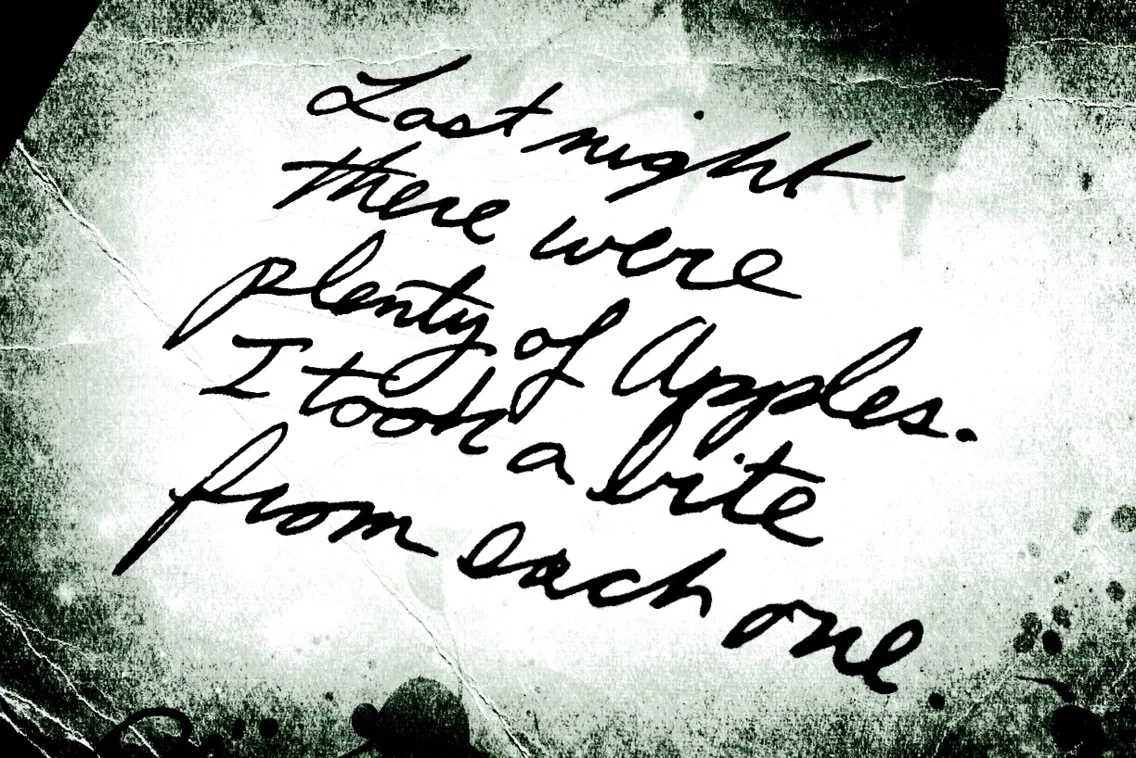 Last night
there were
plenty of Apples.
I took a bite
from each one